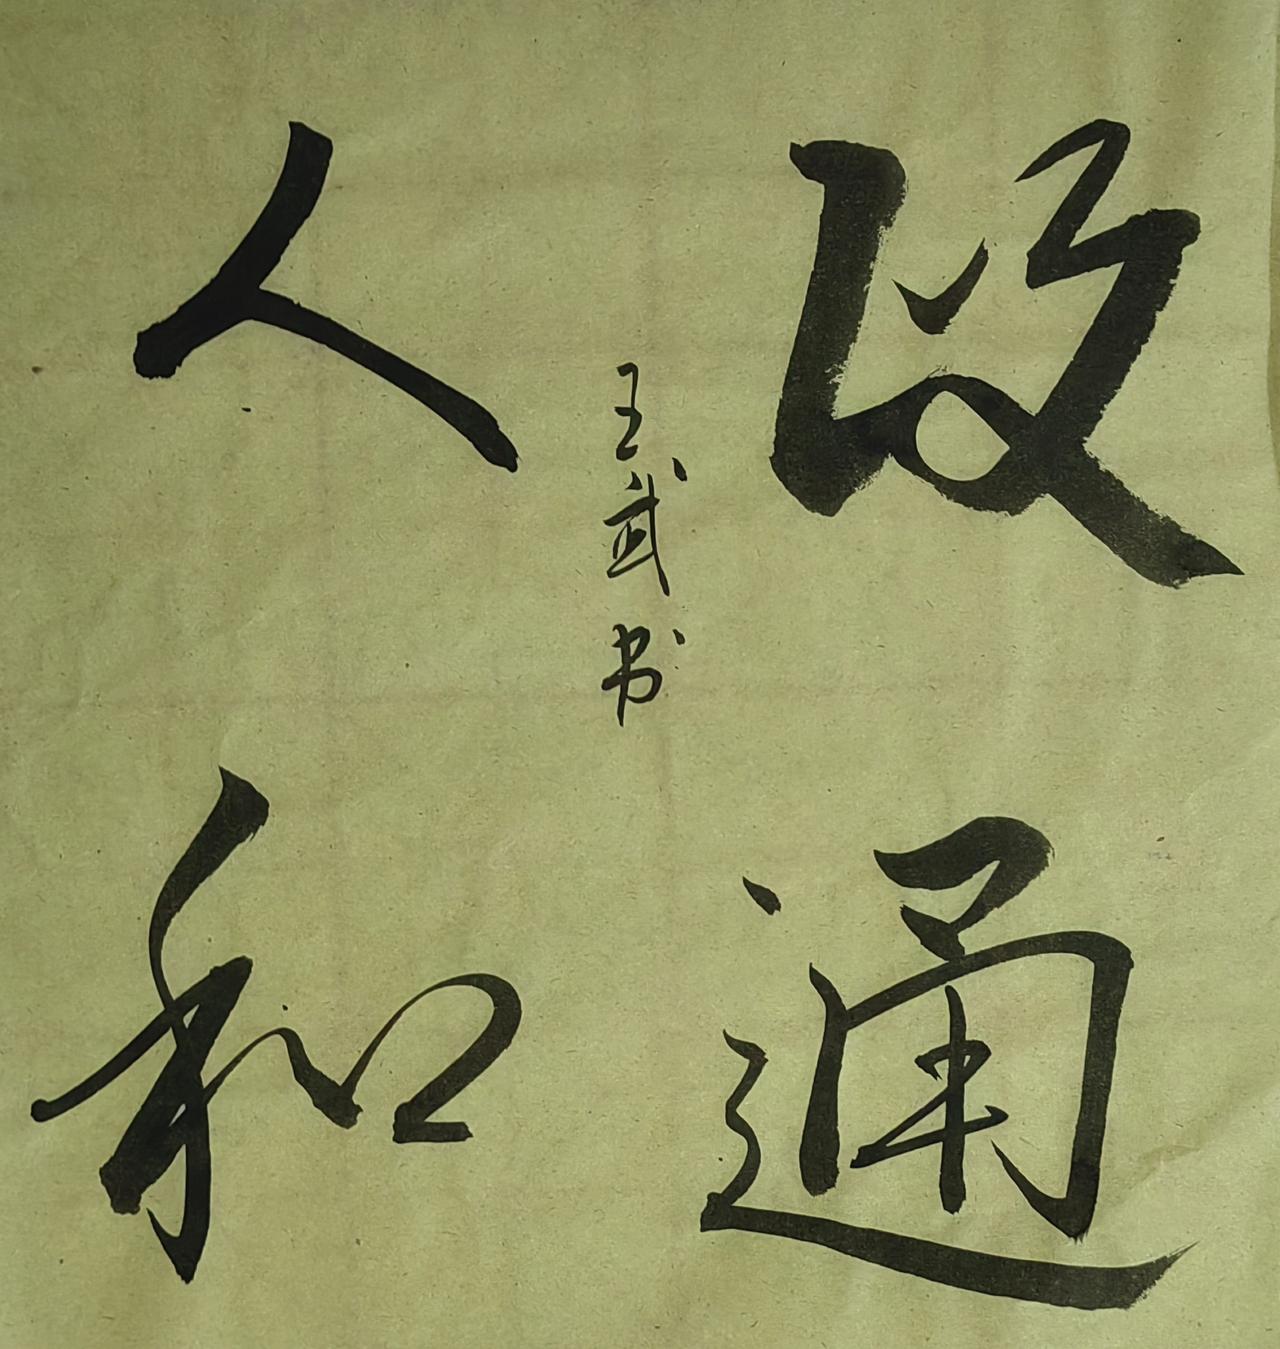 政通
人和
王武书